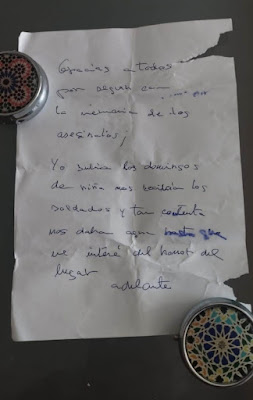 Gracias a todos
por seguir con
la memoria de los
asesinatos,
Yo subía los domingos
de niña nos recibían los
soldados y tan contenta
nos daban agua hasta que
me enteré del horror del
lugar
adelante